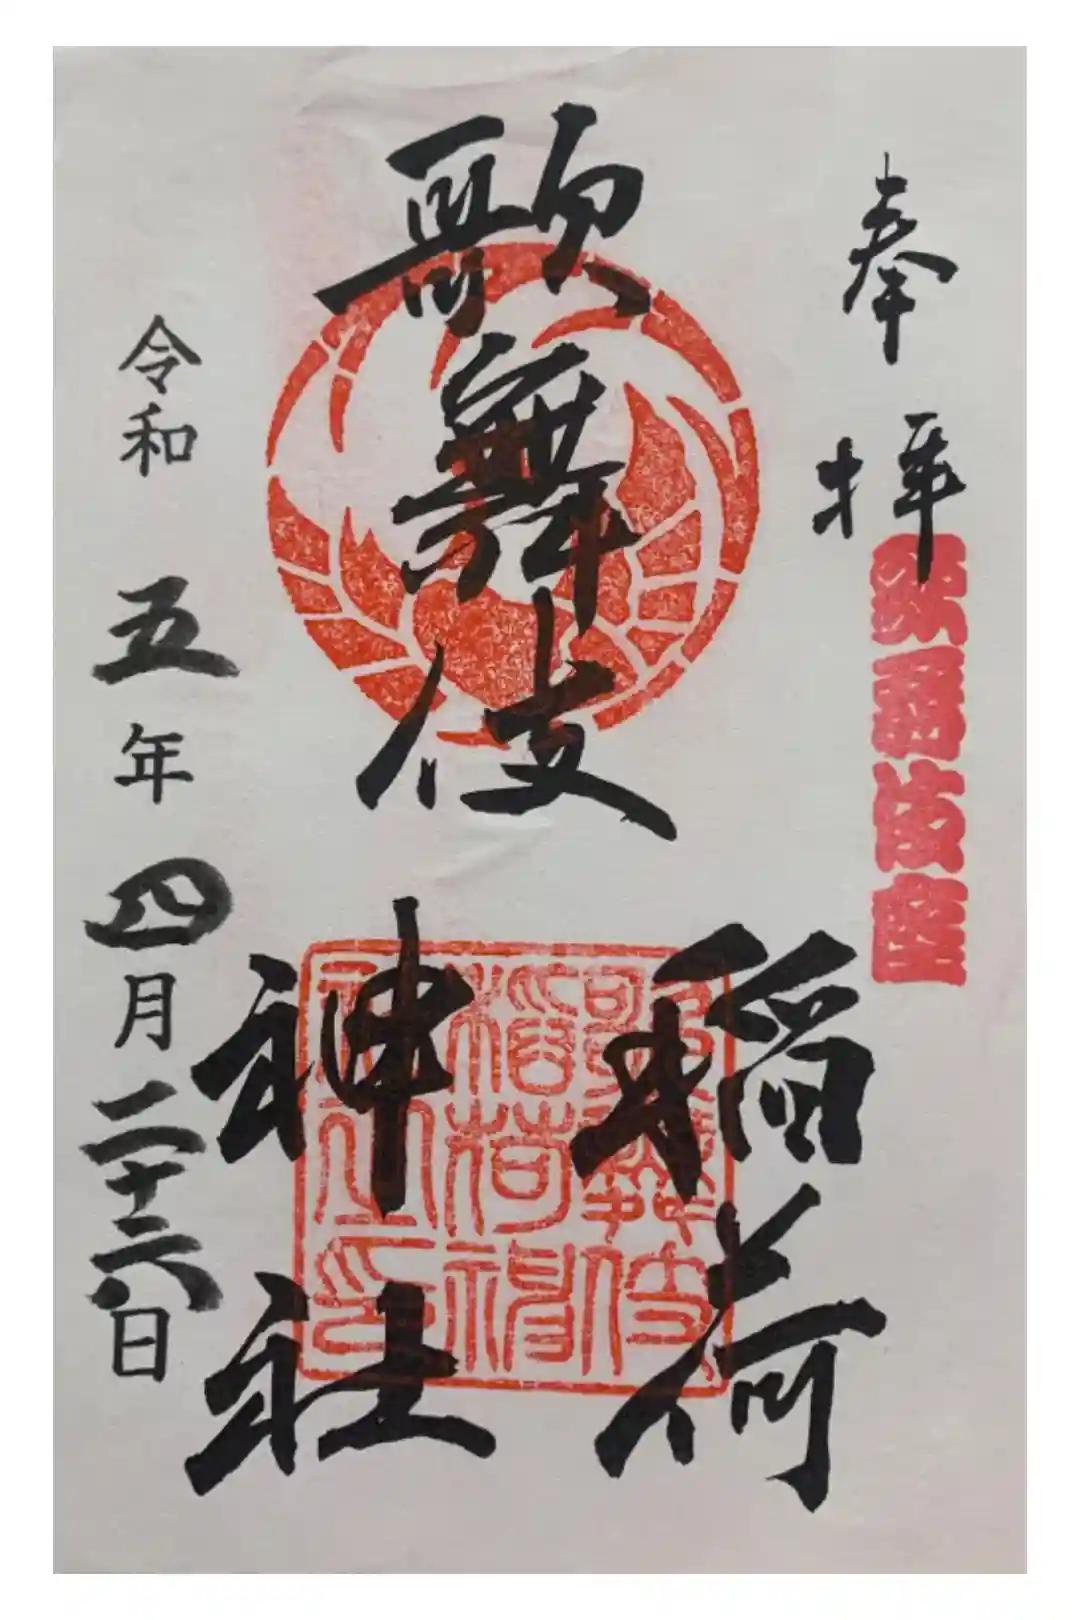 奉拝
歌舞伎座
歌舞伎
稲荷
神社
歌舞伎
稲荷神
社之印
令和五年四月二十六日